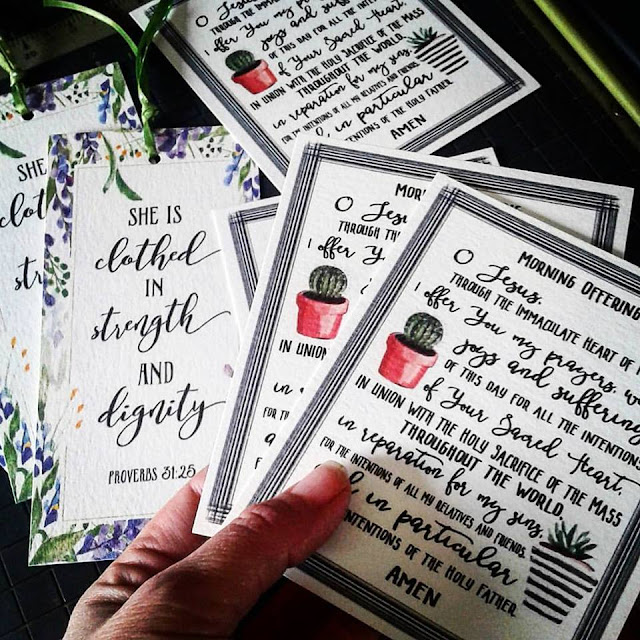 SHE
SHE IS
clothed
IN
strength
AND
dignity
PROVERBS 31:25
O
I offer You my
joys and
OF THIS DAY FOR ALL THE
of Your Sacred Heart,
IN UNION WITH THE HOLY SACRIFICE OF THE MASS
THROUGHOUT THE WORLD,
in reparation for my sins,
FOR THE INTENTIONS OF ALL MY RELATIVES AND FRIENDS,
in particular
INTENTIONS OF THE HOLY FATHER.
AMEN
O Jesus
THROUGH
I offer You
IN UNION
FOR
MORNING OFFERING
O Jesus,
THROUGH THE IMMACULATE HEART OF
I offer You my prayers,
joys and suffering
OF THIS DAY FOR ALL THE INTENTIONS
of Your Sacred Heart,
IN UNION WITH THE HOLY SACRIFICE OF THE MASS
THROUGHOUT THE WORLD,
in reparation for my sins,
FOR THE INTENTIONS OF ALL MY RELATIVES AND FRIENDS,
in particular
INTENTIONS OF THE HOLY FATHER.
AMEN